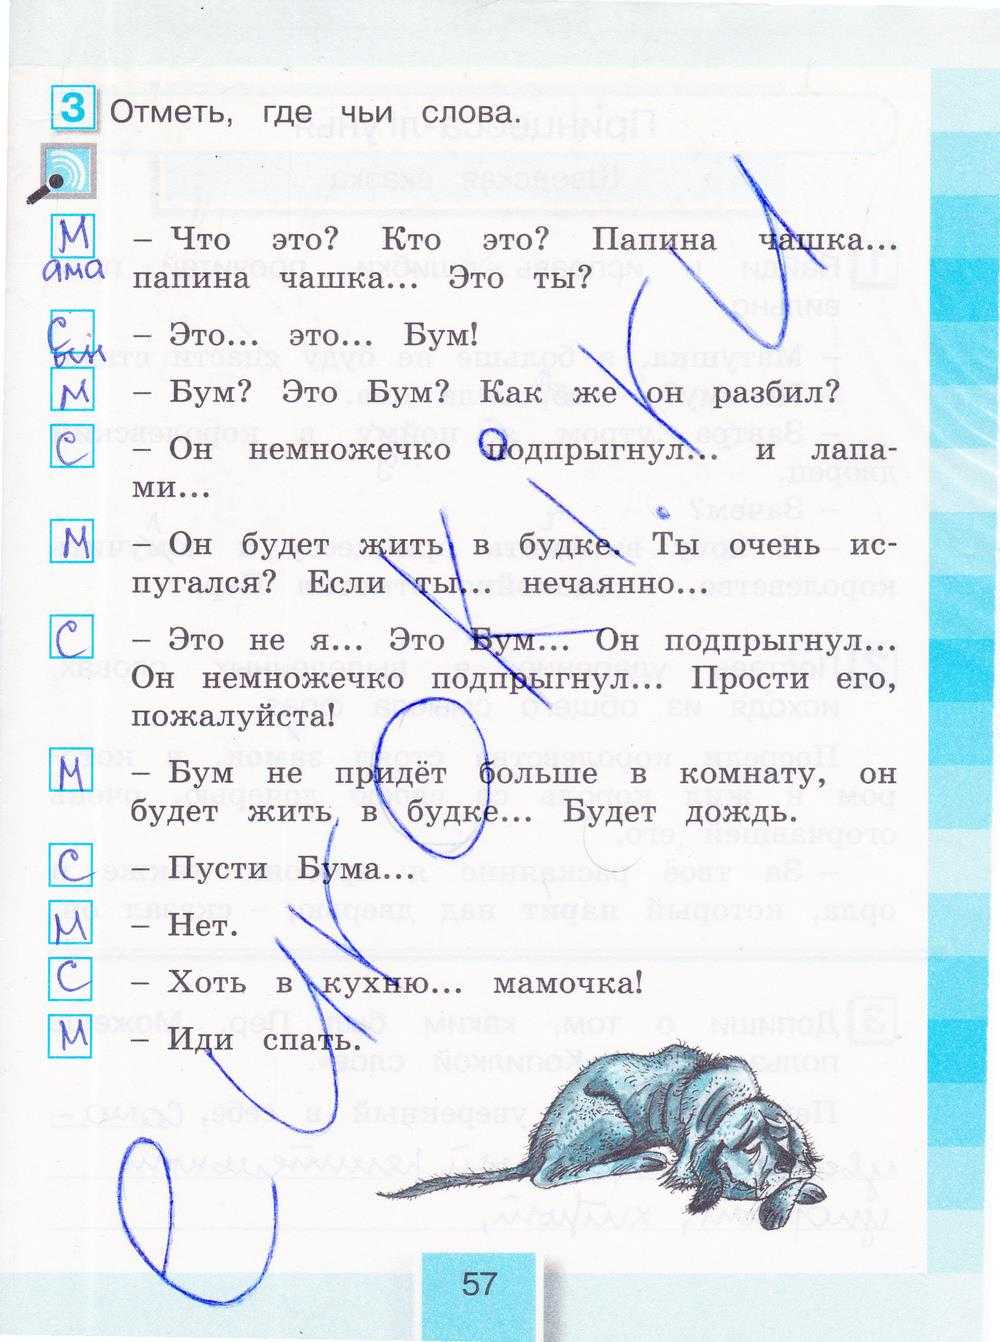 3 Отметь, где чьи слова.
М – Что это? Кто это? Папина чашка...
ама папина чашка... Это ты?
С – Это... это... Бум!
ын
М – Бум? Это Бум? Как же он разбил?
С – Он немножечко подпрыгнул... и лапа-
ми...
М – Он будет жить в будке. Ты очень ис-
пугался? Если ты... нечаянно...
С – Это не я... Это Бум... Он подпрыгнул...
Он немножечко подпрыгнул... Прости его,
пожалуйста!
М – Бум не придёт больше в комнату, он
будет жить в будке... Будет дождь.
С – Пусти Бума...
М – Нет.
С – Хоть в кухню... мамочка!
М – Иди спать.
57